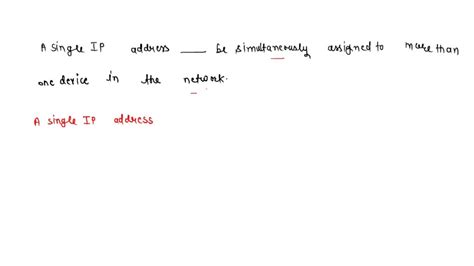 A single IP address ____ be simultaneously assigned to more than
one device in the network.
A single IP address